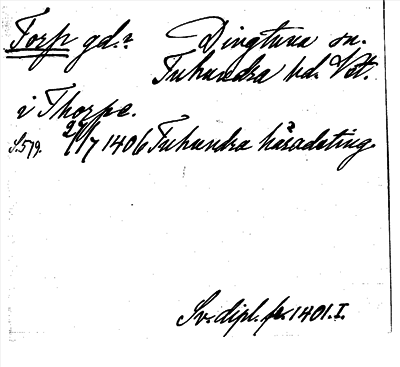 Torp gd.? Dingtuna sn.
Tuhundra hd. Vstt.
i Thorpe.
S. 579. 27/7 1406 Tuhundra häradsting.
Sv. dipl. fr. 1401. I.